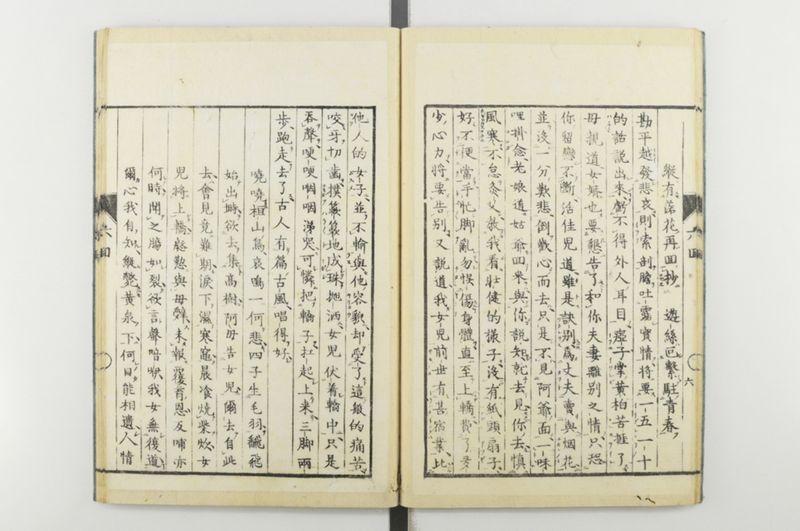 縱有落花再回抄 遊絲忽繫駐青春
勘平越發悲哀則索剖膽吐露實情將要一五一十
的話說出來爭不得外人耳目啞子嘗黃柏苦衹了
母親道女婿也要懇告了和你夫妻離別之情只恐
你留戀不斷活佳兒道雖是訣別爲丈夫賣與烟花
並沒一分歎悲倒歡心而去只是不見阿爺面一味
哩掛念老娘道姑爺回來與你說知就去見你去慎
風寒不怠灸父教我看壯健的樣子沒有紙頭扇子
好不便當手忙脚亂勿悞傷身體直至上轎費了多
少心力將要告別又說道我女兒前世有甚宿業比
他人的女子並不輸與他容貌却受了這般的痛苦
咬牙切齒撲簌簌地成珠抛洒女兒伏着轎中只是
吞聲哽哽咽咽涕哭可憐把轎子扛起上來三脚兩
步跑走去了古人有篇古風唱得好
嘵嘵桓山鳥哀鳴一何悲四子生毛羽翻飛
始出時欲去集高樹阿母告女兒爾去自此
去會見竟難期淚下濕寒竈晨飡燒柴炊女
兒將上轎慇懃與母辭未報覆育恩反哺亦
何時聞之膓如裂欲言聲喑啞我女無復道
爾心我自知縱斃黃泉下何日能相遺人情
六回
六